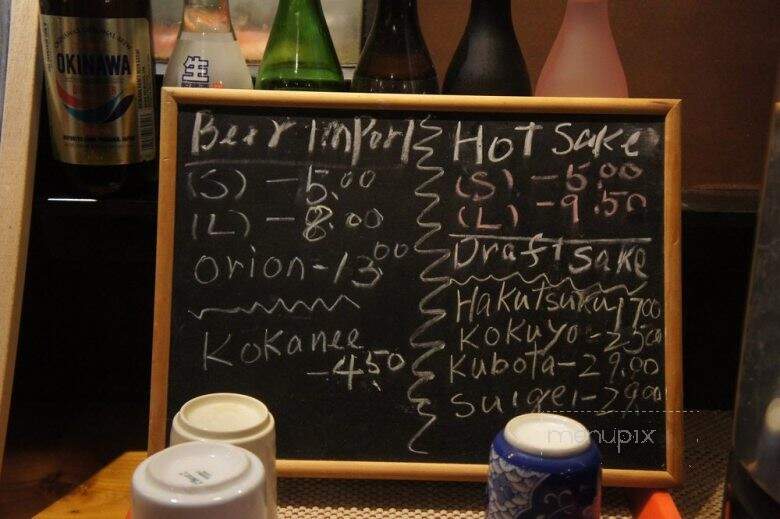 OKINAWA
生
Beer Import
(S) - 5.00
(L) - 8.00
Orion - 13.00
Kokanee
- 4.50
Hot Sake
(S) - 5.00
(L) - 9.50
Draft sake
Hakutsuru 17.00
Kokuyo - 25.00
Kubota - 29.00
Suigei - 29.00
menupix